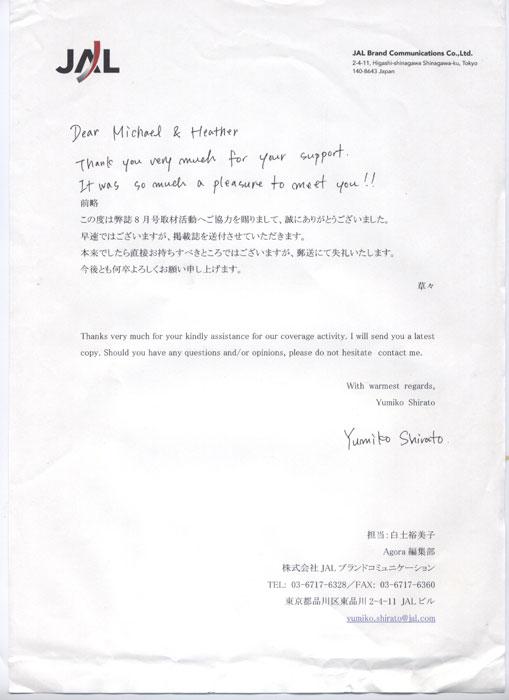 JAL
JAL Brand Communications Co.,Ltd.
2-4-11, Higashi-shinagawa Shinagawa-ku, Tokyo
140-8643 Japan
Dear Michael & Heather
Thank you very much for your support.
It was so much a pleasure to meet you!!
前略
この度は弊誌8月号取材活動へご協力を賜りまして、誠にありがとうございました。
早速ではございますが、掲載誌を送付させていただきます。
本来でしたら直接お持ちすべきところではございますが、郵送にて失礼いたします。
今後とも何卒よろしくお願い申し上げます。
草々
Thanks very much for your kindly assistance for our coverage activity. I will send you a latest
copy. Should you have any questions and/or opinions, please do not hesitate contact me.
With warmest regards,
Yumiko Shirato
Yumiko Shirato.
担当:白土裕美子
Agora 編集部
株式会社 JAL ブランドコミュニケーション
TEL: 03-6717-6328／FAX: 03-6717-6360
東京都品川区東品川 2-4-11 JAL ビル
yumiko.shirato@jal.com